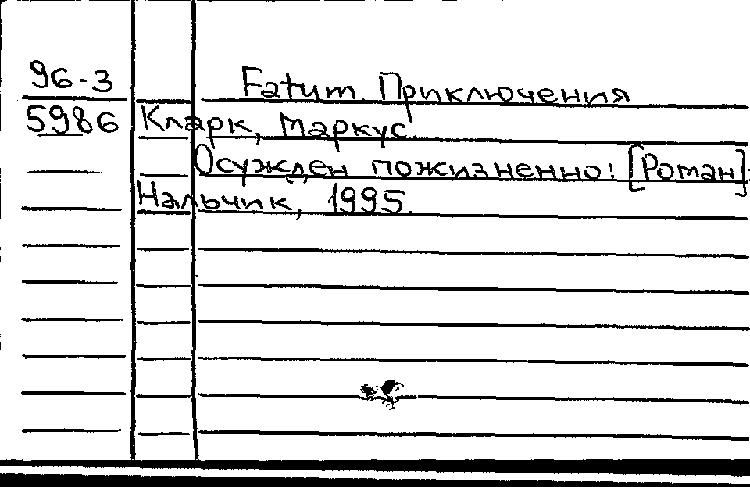 96-3 Fatum. Приключения
5986 Кларк, Маркус.
Осужден пожизненно! [Роман]
Нальчик, 1995.